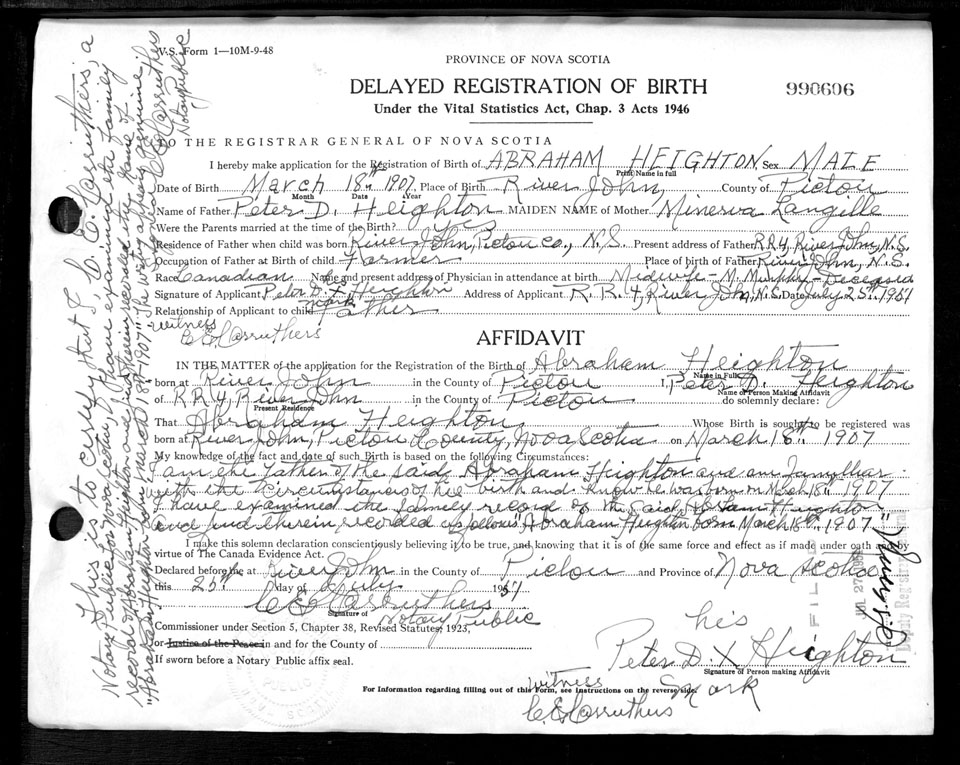 V.S. Form 1—10M-9-48
PROVINCE OF NOVA SCOTIA
DELAYED REGISTRATION OF BIRTH
990606
Under the Vital Statistics Act, Chap. 3 Acts 1946
TO THE REGISTRAR GENERAL OF NOVA SCOTIA
I hereby make application for the Registration of Birth of ABRAHAM HEIGHTON Sex MALE
Print Name in full
Date of Birth March 18th 1907 Place of Birth River John, County of Pictou
Month Date Year
Name of Father Peter D. Heighton MAIDEN NAME of Mother Minerva Langille
Were the Parents married at the time of the Birth? Yes
Residence of Father when child was born River John, Pictou Co., N.S. Present address of Father R.R.4, River John, N.S.
Occupation of Father at Birth of child Farmer Place of birth of Father River John, N.S.
Race Canadian Name and present address of Physician in attendance at birth Midwife - M. Murphy - Deceased
Signature of Applicant Peter D. X Heighton Address of Applicant R.R. 4, River John, N.S. Date July 25th 1951
mark
Relationship of Applicant to child Father
witness
C E Carruthers
AFFIDAVIT
IN THE MATTER of the application for the Registration of the Birth of Abraham Heighton
Name in Full
born at River John in the County of Pictou I, Peter D. Heighton
Name of Person Making Affidavit
of R.R 4, River John in the County of Pictou do solemnly declare:
Present Residence
That Abraham Heighton Whose Birth is sought to be registered was
born at River John, Pictou County, Nova Scotia on March 18th 1907
My knowledge of the fact and date of such Birth is based on the following Circumstances:
I am the Father of the said Abraham Heighton and am familiar
with the circumstances of his birth and know he was born on March 18th 1907
I have examined the family record of the said Abraham Heighton
and find therein recorded as follows "Abraham Heighton born March 18th 1907"
I make this solemn declaration conscientiously believing it to be true, and knowing that it is of the same force and effect as if made under oath and by
virtue of The Canada Evidence Act.
Declared before me at River John in the County of Pictou and Province of Nova Scotia
this 25th day of July 1951
C E Carruthers
Signature of
Notary Public
Commissioner under Section 5, Chapter 38, Revised Statutes, 1923,
or Justice of the Peace in and for the County of
If sworn before a Notary Public affix seal.
his
Peter D. X Heighton
Signature of Person making Affidavit
mark
For Information regarding filling out of this Form, see instructions on the reverse side.
witness
C E Carruthers
FILED
Deputy Registrar
This is to certify that I, C. E. Carruthers, a
Notary Public for Nova Scotia, have examined the family
record of Abraham Heighton and find therein recorded the name of
"Abraham Heighton born March 18th 1907"
C E Carruthers
Notary Public